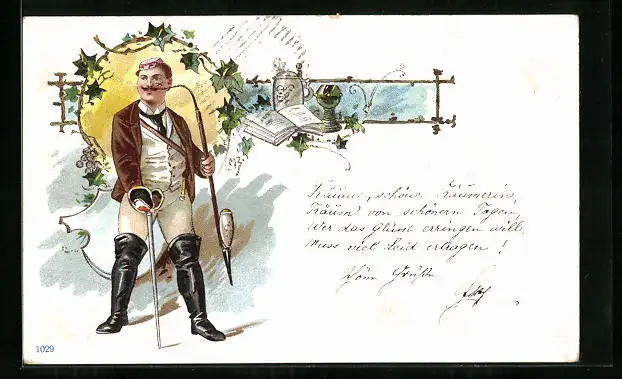 Träume, schöne Träumerin,
Träum' von schönern Tagen,
Wer das Glück erringen will,
Muss viel Leid ertragen!
Schöne Grüße
1029